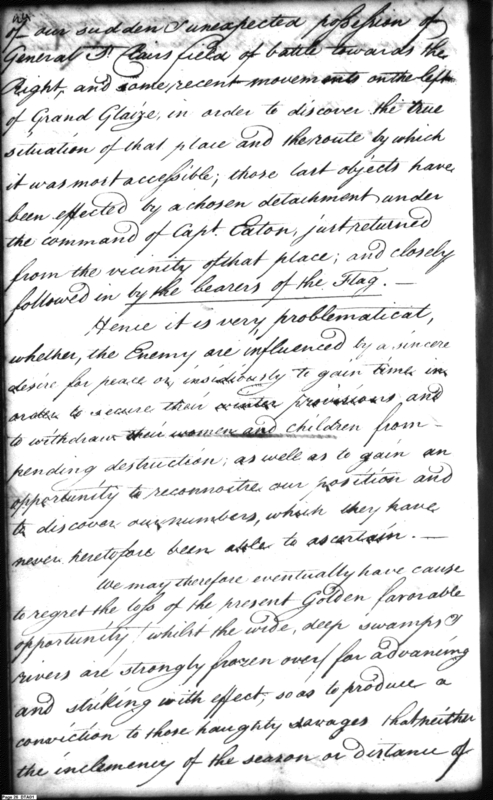 of our sudden & unexpected possession of
General St Clairs field of battle towards the
Right, and some, recent movements on the left
of Grand Glaize, in order to discover the true
situation of that place and the route by which
it was most accessible; those last objects have
been effected by a chosen detachment under
the command of Capt. Eaton, just returned
from the vicinity of that place; and closely
followed in by the bearers of the Flag. —
Hence it is very problematical,
whether, the Enemy are influenced by a sincere
desire for peace or insidiously to gain time in
order to secure their winter provisions and
to withdraw their women and children from
pending destruction; as well as to gain an
opportunity to reconnoitre our position and
to discover our numbers, which they have
never heretofore been able to ascertain. —
We may therefore eventually have cause
to regret the loss of the present Golden favorable
opportunity! whilst the wide, deep swamps &
rivers are strongly frozen over/ for advancing
and striking with effect, so as to produce a
conviction to those haughty savages that neither
the inclemency of the season or distance of
Page 26